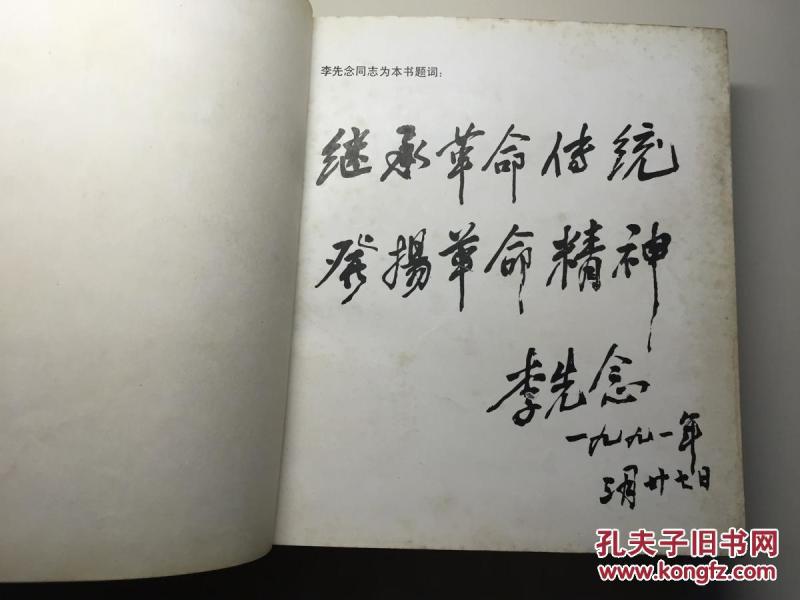 李先念同志为本书题词：
继承革命传统
發揚革命精神
李先念
一九九一年
三月廿七日
孔夫子旧书网
www.kongfz.com